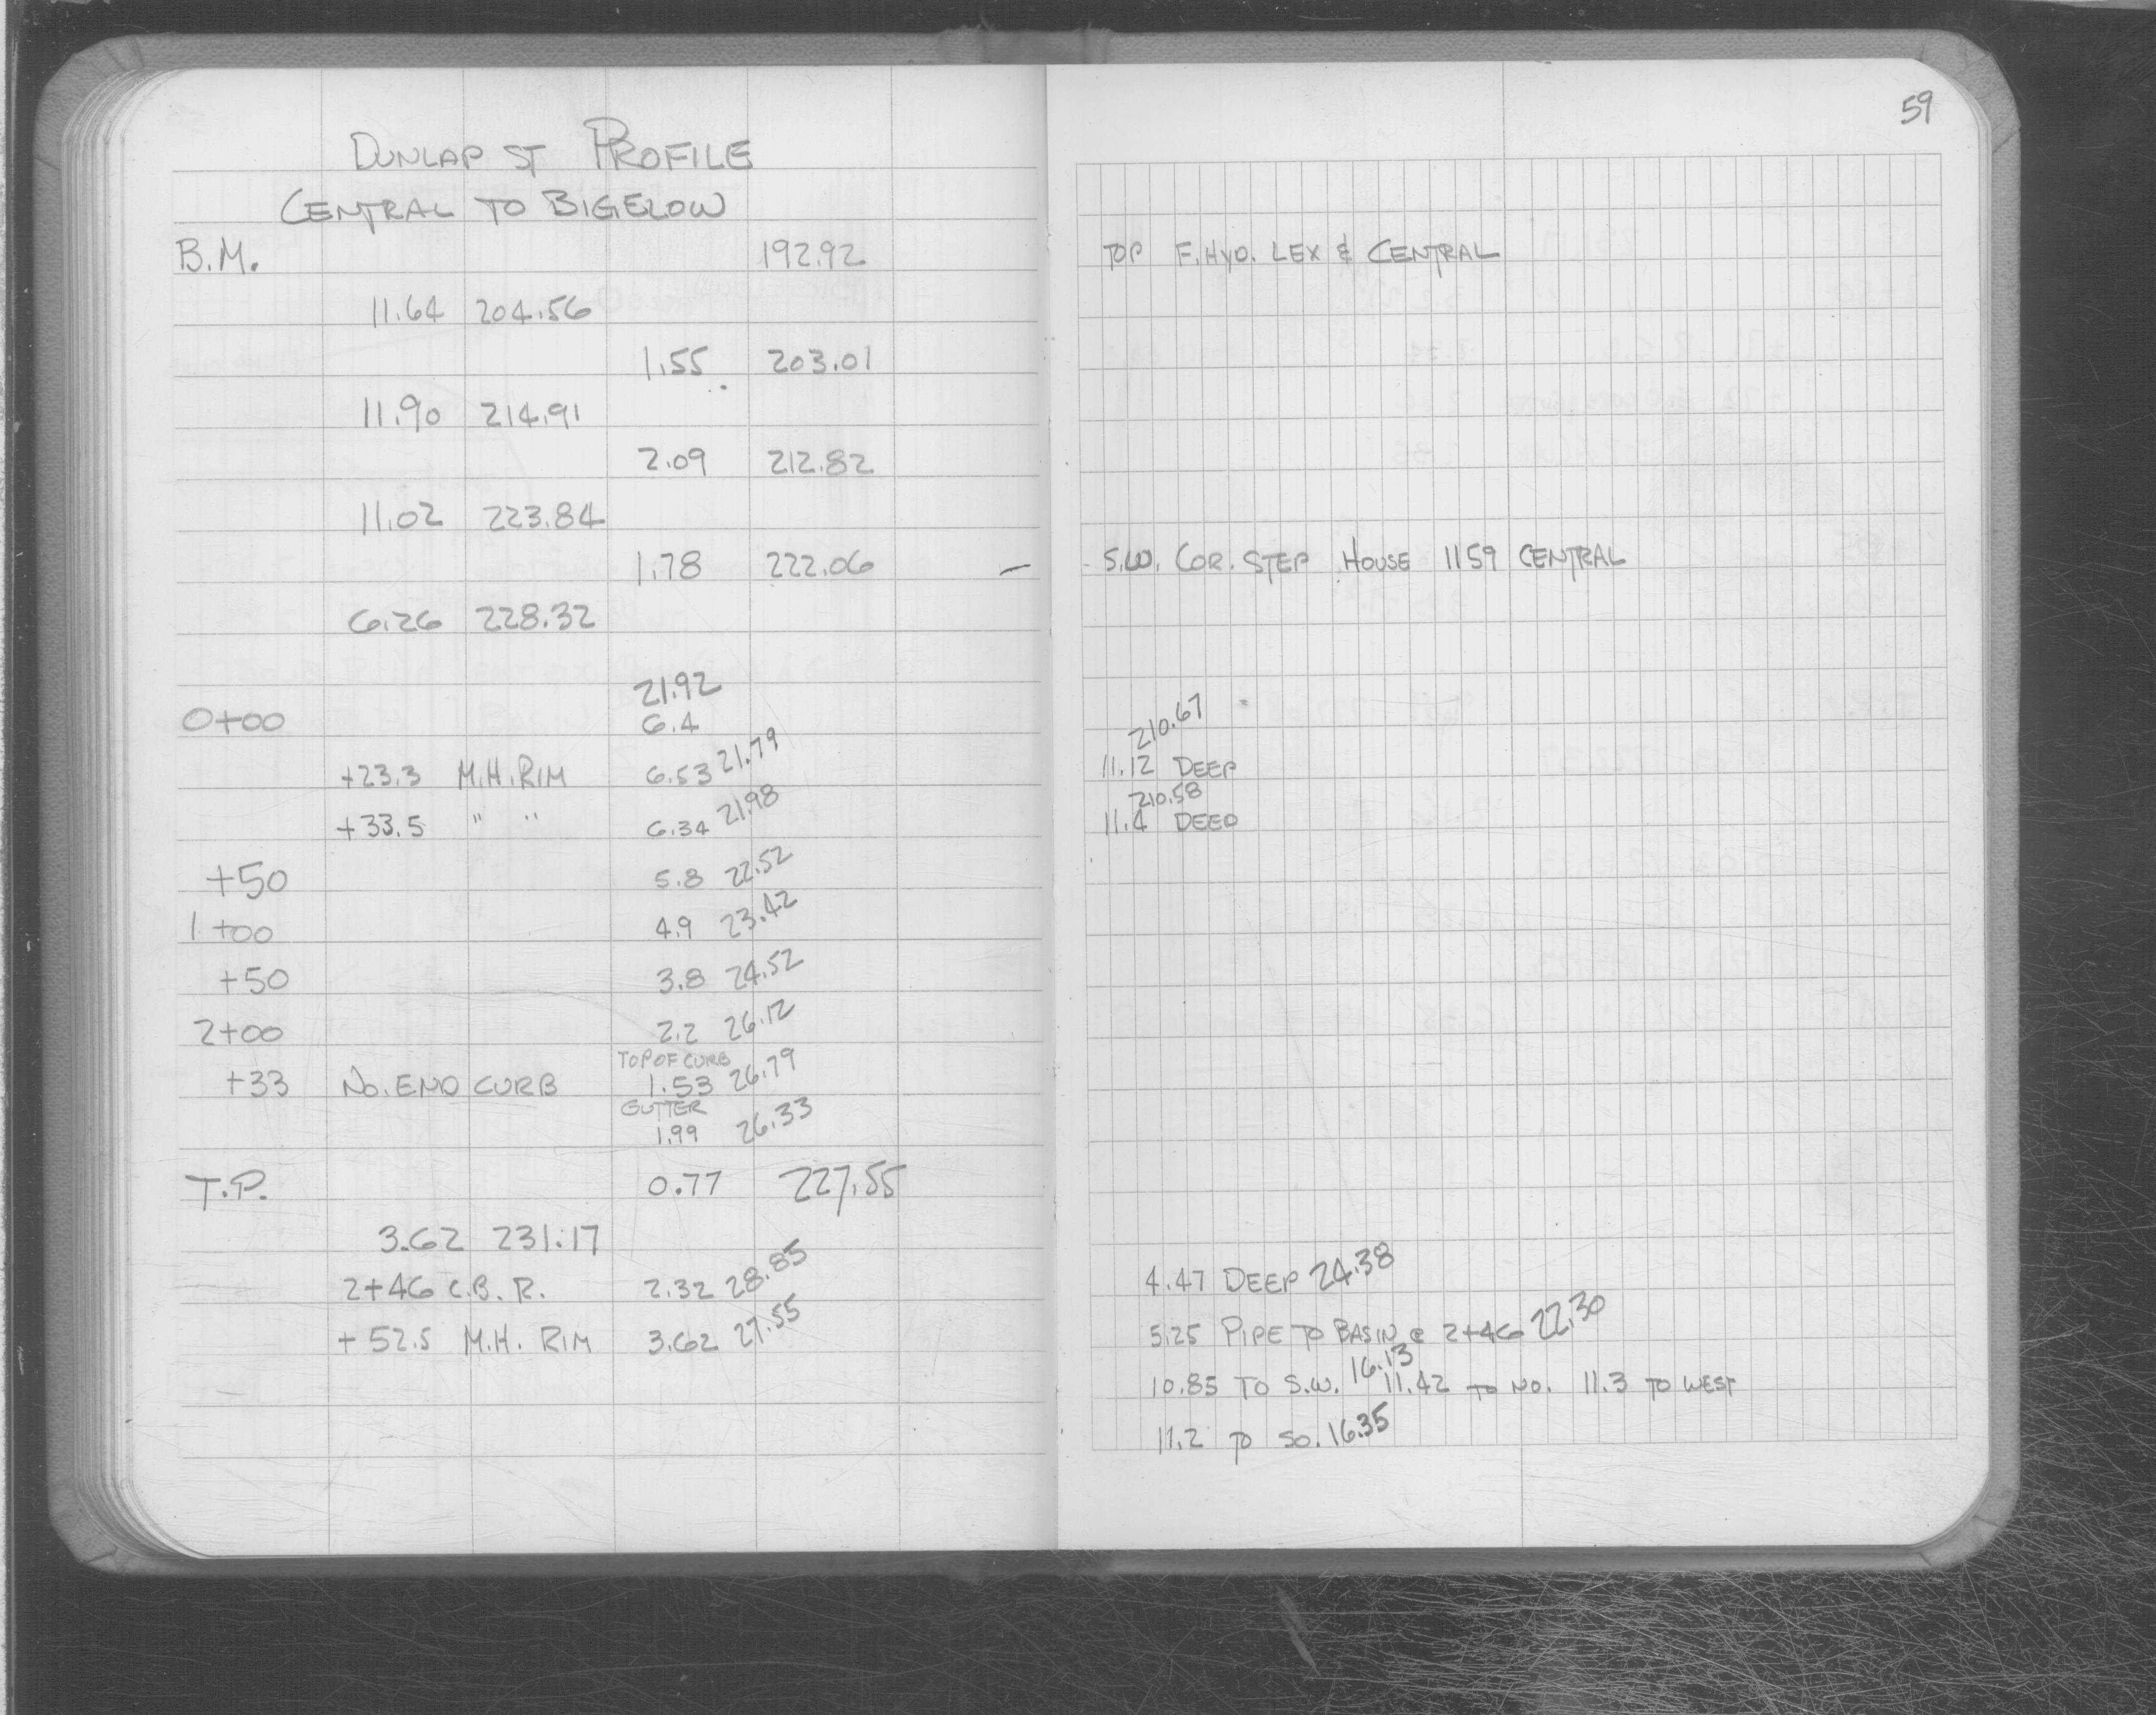 59
DUNLAP ST PROFILE
CENTRAL TO BIGELOW
B.M. 192.92 TOP F. HYD. LEX & CENTRAL
11.64 204.56
1.55 203.01
11.90 214.91
2.09 212.82
11.02 223.84
1.78 222.06 — S.W. COR. STEP HOUSE 1159 CENTRAL
6.26 228.32
21.92
0+00 6.4
210.67
+23.3 M.H. RIM 6.53 21.79 11.12 DEEP
210.58
+33.5 " " 6.34 21.98 11.4 DEEP
+50 5.8 22.52
1+00 4.9 23.42
+50 3.8 24.52
2+00 2.2 26.12
TOP OF CURB
+33 NO. END CURB 1.53 26.79
GUTTER
1.99 26.33
T.P. 0.77 227.55
3.62 231.17
2+46 C.B. R. 2.32 28.85 4.47 DEEP 24.38
+52.5 M.H. RIM 3.62 27.55 5.25 PIPE TO BASIN @ 2+46 22.30
10.85 TO S.W. 16.13 11.42 TO NO. 11.3 TO WEST
11.2 TO SO. 16.35